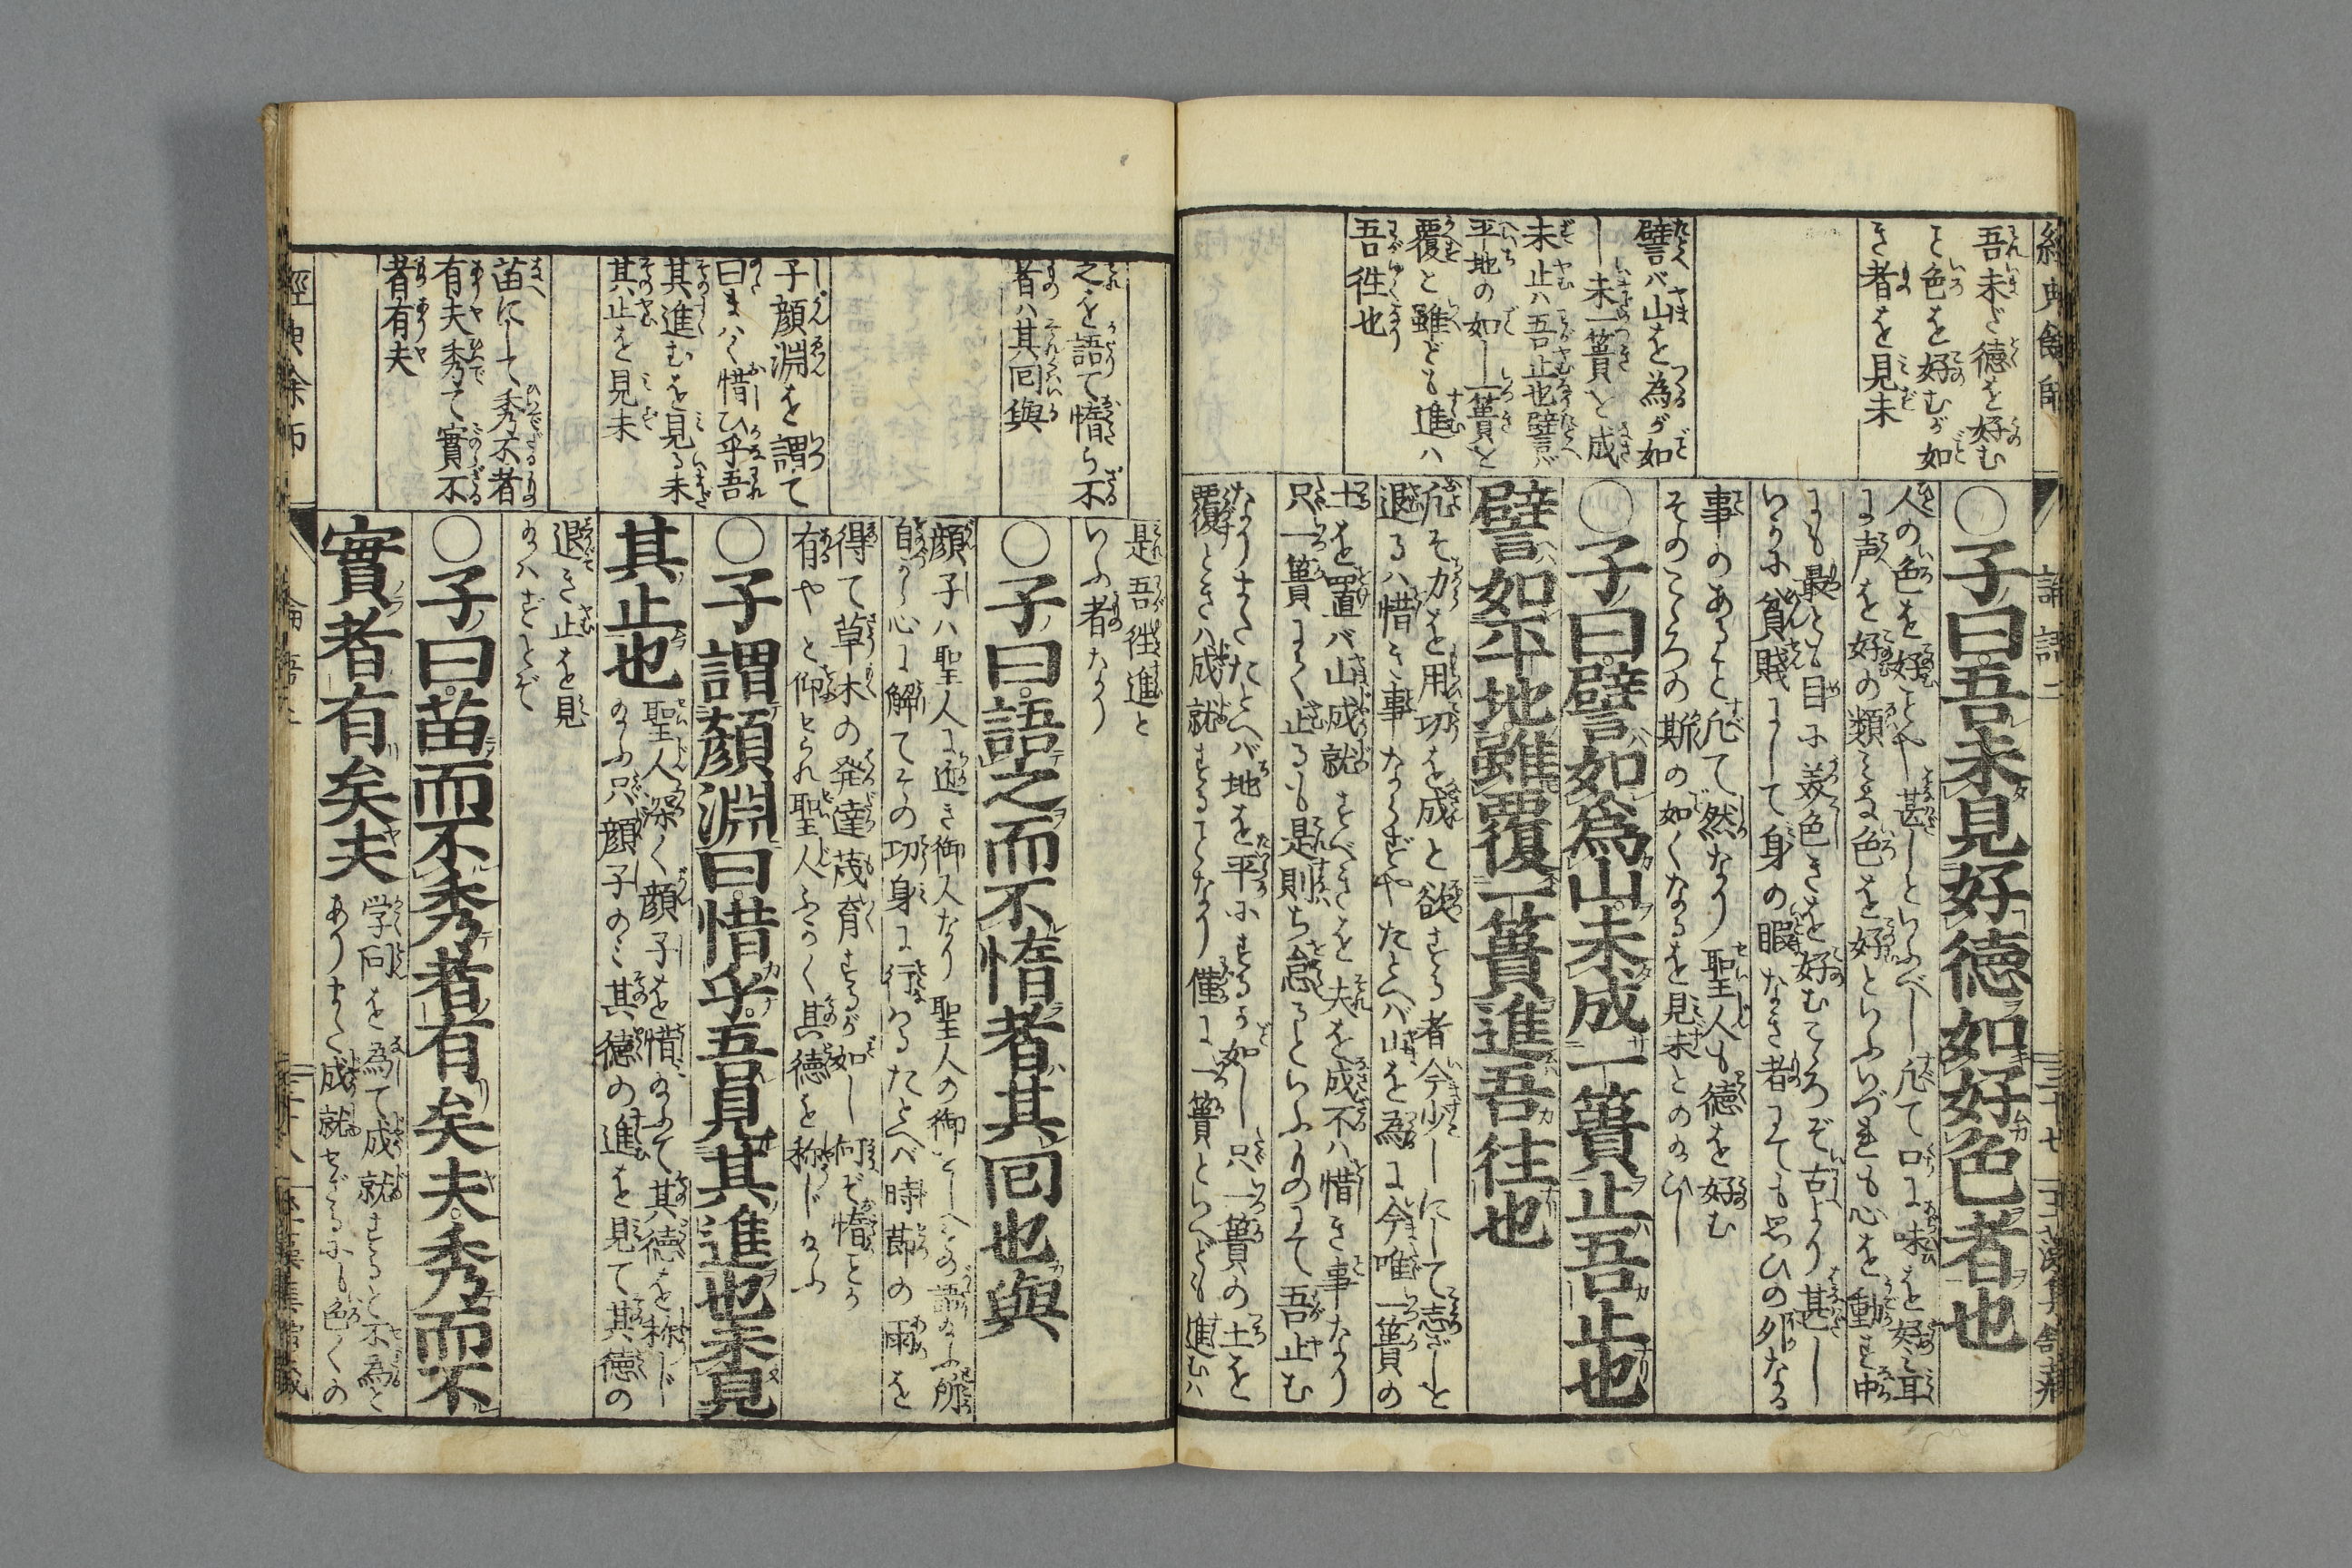 吾未だ徳を好む
こと色を好むが如
き者を見未
○子曰吾未見好徳如好色者也
人の色を好ことや甚しといふべし凡て口に味を好耳
に声を好の類みな色を好といふいづれも心を動し中
にも最とも目に美色きを好むころぞ古より甚し
いかに貧賤にして身の暇なき者にても思ひの外なる
事のあると凡て然なり聖人も徳を好む
そのこころの斯の如くなるを見未とのの給ひし
譬バ山を為が如
し未一簣を成
未止ハ吾止也譬バ
平地の如し一簣を
覆と雖ども進ハ
吾徃也
○子曰譬如爲山未成一簣止吾止也
譬如平地雖覆一簣進吾往也
凡そ力を用功を成と欲する者今少しにして志ざしを
退るハ惜き事ならずやたとへバ山を為に今唯一簣の
土を置バ山成就すべきを夫を成不ハ惜き事なり
只一簣にて止るも是則ち怠るといふものにて吾止む
なりまたたとへバ地を平にするが如し只一簣の土を
覆ときハ成就することなり僅に一簣といへども進むハ
是吾徃進と
いふ者なり
之を語て惰ら不
者ハ其囘與
○子曰語之而不惰者其囘也與
顔子ハ聖人に近き御人なり聖人の御をしへの語給ふ所
自から心に解てその功身に行わるたとへバ時節の雨を
得て草木の発達茂育するが如し何ぞ惰ことか
有やと仰られ聖人ふかく其徳を称じ給ふ
子顔淵を謂て
曰まハく惜ひ乎吾
其進むを見る未
其止を見未
○子謂顏淵曰惜乎吾見其進也未見
其止也
聖人深く顔子を惜給ふて其徳を称じ
給ふ只顔子のミ其徳の進を見て其徳の
退き止を見
給ハずとぞ
苗にして秀不者
有夫秀て實不
者有夫
○子曰苗而不秀者有矣夫秀而不
實者有矣夫
学问を為て成就すると不為と
ありまた成就せざるにも色〱の
經典餘師
論語二
三十八